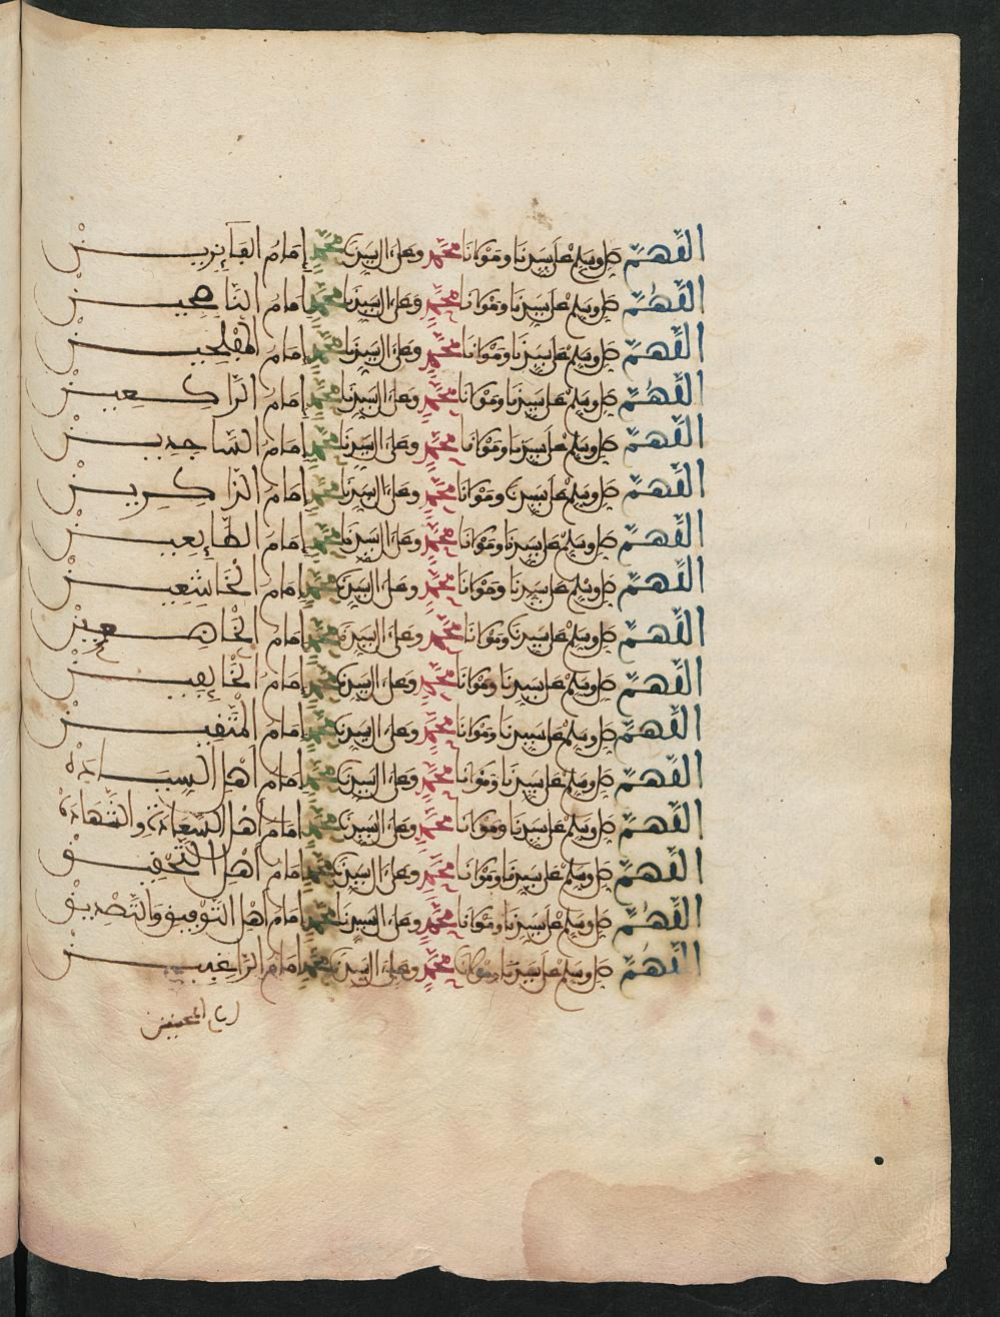 اللهم صل وسلم على سيدنا ومولانا محمد وعلى ال سيدنا محمد إمام الفائزين
اللهم صل وسلم على سيدنا ومولانا محمد وعلى ال سيدنا محمد إمام الناصحين
اللهم صل وسلم على سيدنا ومولانا محمد وعلى ال سيدنا محمد إمام المفلحين
اللهم صل وسلم على سيدنا ومولانا محمد وعلى ال سيدنا محمد إمام الراكعين
اللهم صل وسلم على سيدنا ومولانا محمد وعلى ال سيدنا محمد إمام الساجدين
اللهم صل وسلم على سيدنا ومولانا محمد وعلى ال سيدنا محمد إمام الذاكرين
اللهم صل وسلم على سيدنا ومولانا محمد وعلى ال سيدنا محمد إمام الطائعين
اللهم صل وسلم على سيدنا ومولانا محمد وعلى ال سيدنا محمد إمام الخاشعين
اللهم صل وسلم على سيدنا ومولانا محمد وعلى ال سيدنا محمد إمام الخاضعين
اللهم صل وسلم على سيدنا ومولانا محمد وعلى ال سيدنا محمد إمام الخائفين
اللهم صل وسلم على سيدنا ومولانا محمد وعلى ال سيدنا محمد إمام المتقين
اللهم صل وسلم على سيدنا ومولانا محمد وعلى ال سيدنا محمد إمام أهل السيادة
اللهم صل وسلم على سيدنا ومولانا محمد وعلى ال سيدنا محمد إمام أهل السعادة والشهادة
اللهم صل وسلم على سيدنا ومولانا محمد وعلى ال سيدنا محمد إمام أهل التحقيق
اللهم صل وسلم على سيدنا ومولانا محمد وعلى ال سيدنا محمد إمام أهل التوفيق والتصديق
اللهم صل وسلم على سيدنا ومولانا محمد وعلى ال سيدنا محمد إمام الراغبين